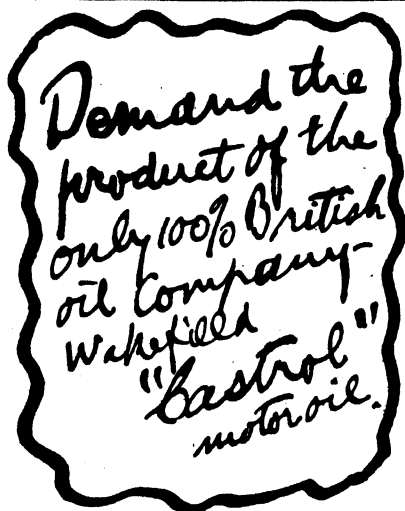 Demand the
product of the
only 100% British
oil Company–
Wakefield
"Castrol"
motor oil.